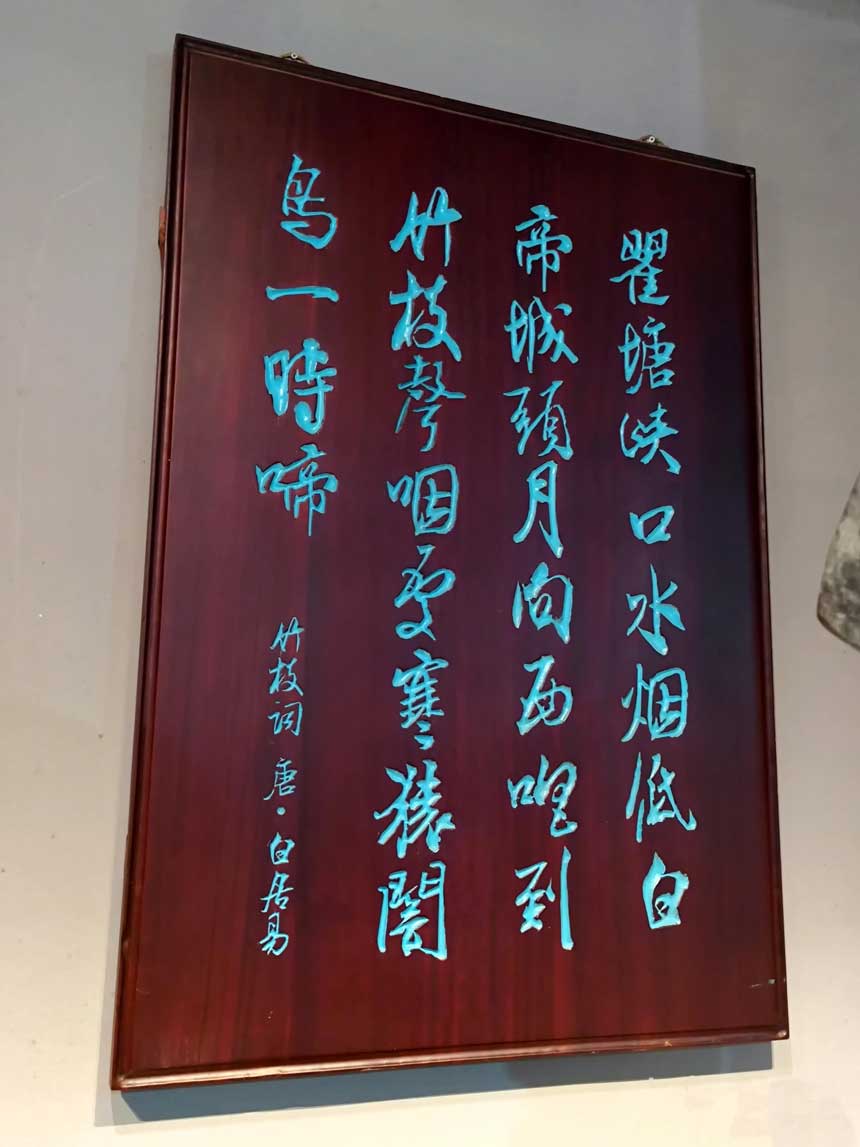 瞿塘峡口水烟低白
帝城頭月向西唱到
竹枝聲咽處寒猿闇
鳥一時啼
竹枝词 唐·白居易